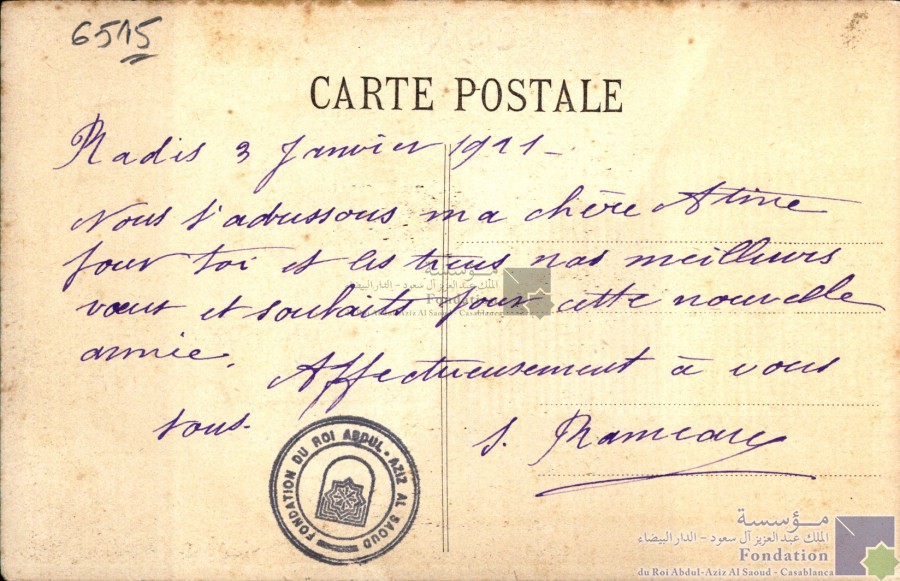 6515
CARTE POSTALE
Radès 3 Janvier 1921 -
Nous t'adressons ma chère Aline
pour toi et les tiens nos meilleurs
vœux et souhaits pour cette nouvelle
année.
Affectueusement à vous
tous.
S.
FONDATION DU ROI ABDUL-AZIZ AL SAOUD
مؤسسة
الملك عبد العزيز آل سعود - الدار البيضاء
Fondation
du Roi Abdul-Aziz Al Saoud - Casablanca
مؤسسة
الملك عبد العزيز آل سعود - الدار البيضاء
Fondation
du Roi Abdul-Aziz Al Saoud - Casablanca